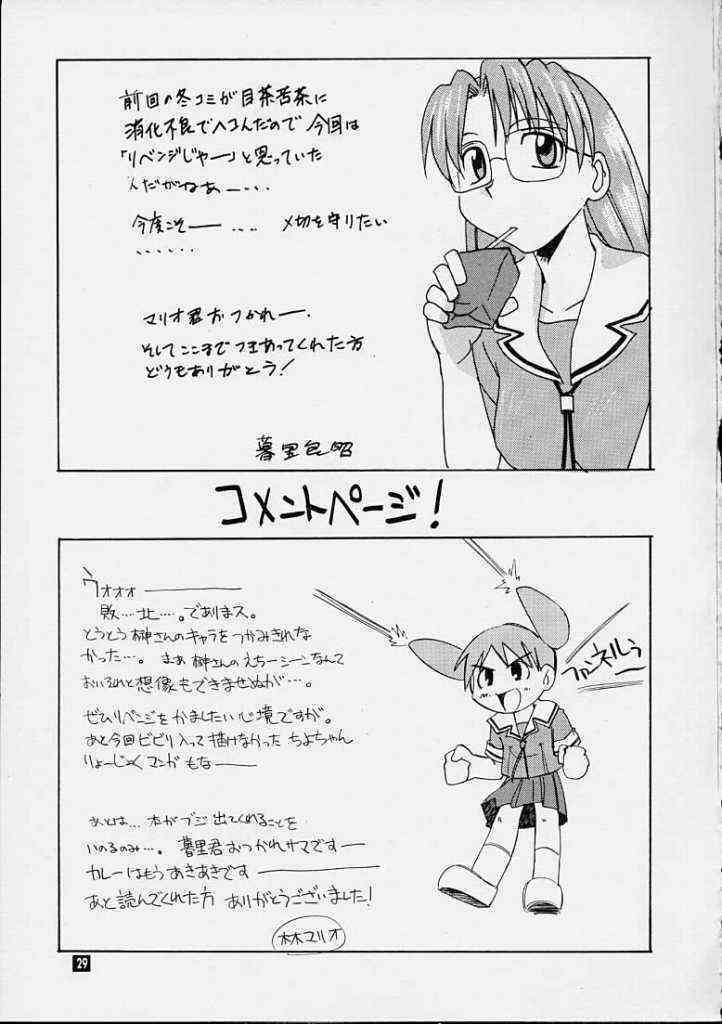 前回の冬コミが目茶苦茶に
消化不良でヘコんだので今回は
「リベンジじゃー」と思っていた
んだがなぁー...
今度こそ―― .... 〆切を守りたい
......
マリオ君おつかれー.
そしてここまでつきあってくれた方
どうもありがとう!
暮里
コメントページ!
ウォォォ――――
敗...北...。であります。
とうとう榊さんのキャラをつかみきれな
かった...。まぁ榊さんのえちーシーンなんて
おいそれと想像もできませぬが...。
ぜひリベンジをかましたい心境ですが。
あと今回ビビリ入って描けなかった ちよちゃん
りょーじょくマンガもなー――
あとは...本がブジ出てくれることを
いのるのみ...。暮里君おつかれサマです――
カレーはもうあきあきです――――
あと読んでくれた方 ありがとうございました!
マリオ
ファンネルゥ
29